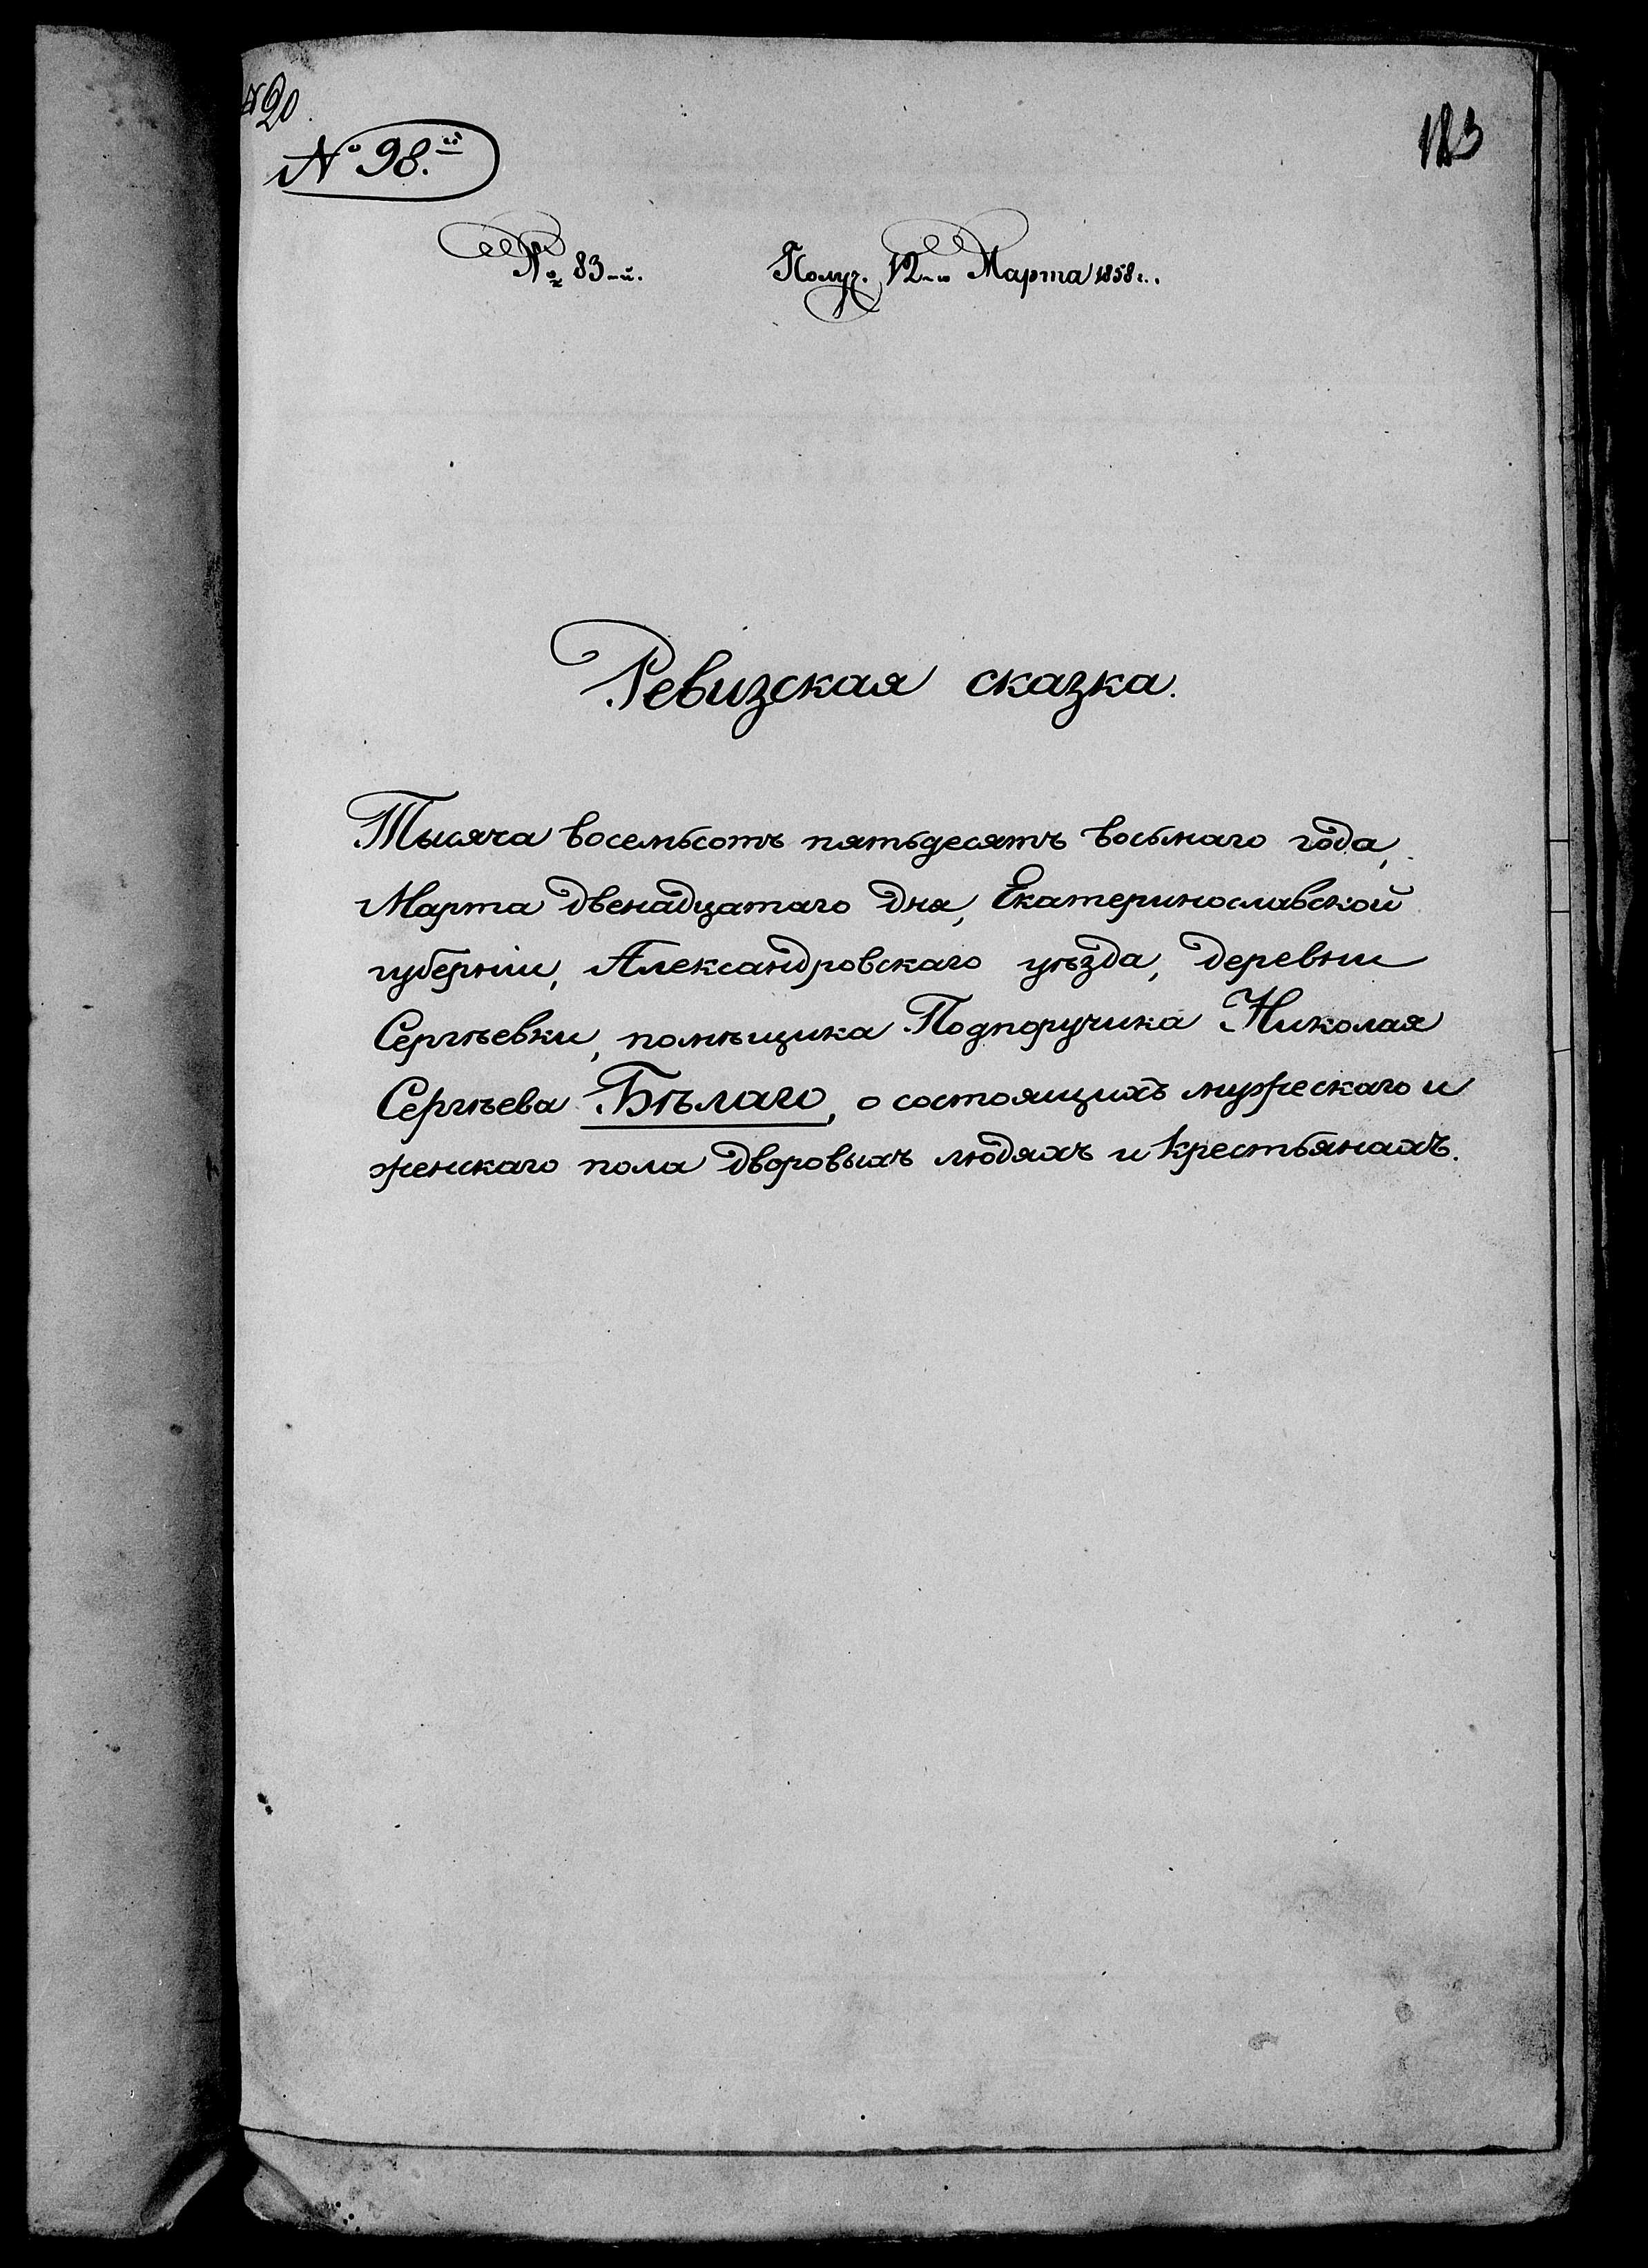 20
№ 98.й
183
№ 83-й. Получ. 12-го Марта 1858 г.
Ревизская сказка.
Тысяча восемьсотъ пятьдесятъ восьмаго года,
Марта двенадцатаго дня, Екатеринославской
губерніи, Александровскаго уѣзда, деревни
Сергѣевки, помѣщика Подпоручика Николая
Сергѣева Бѣлаго, о состоящихъ мужескаго и
женскаго пола дворовыхъ людяхъ и крестьянахъ.